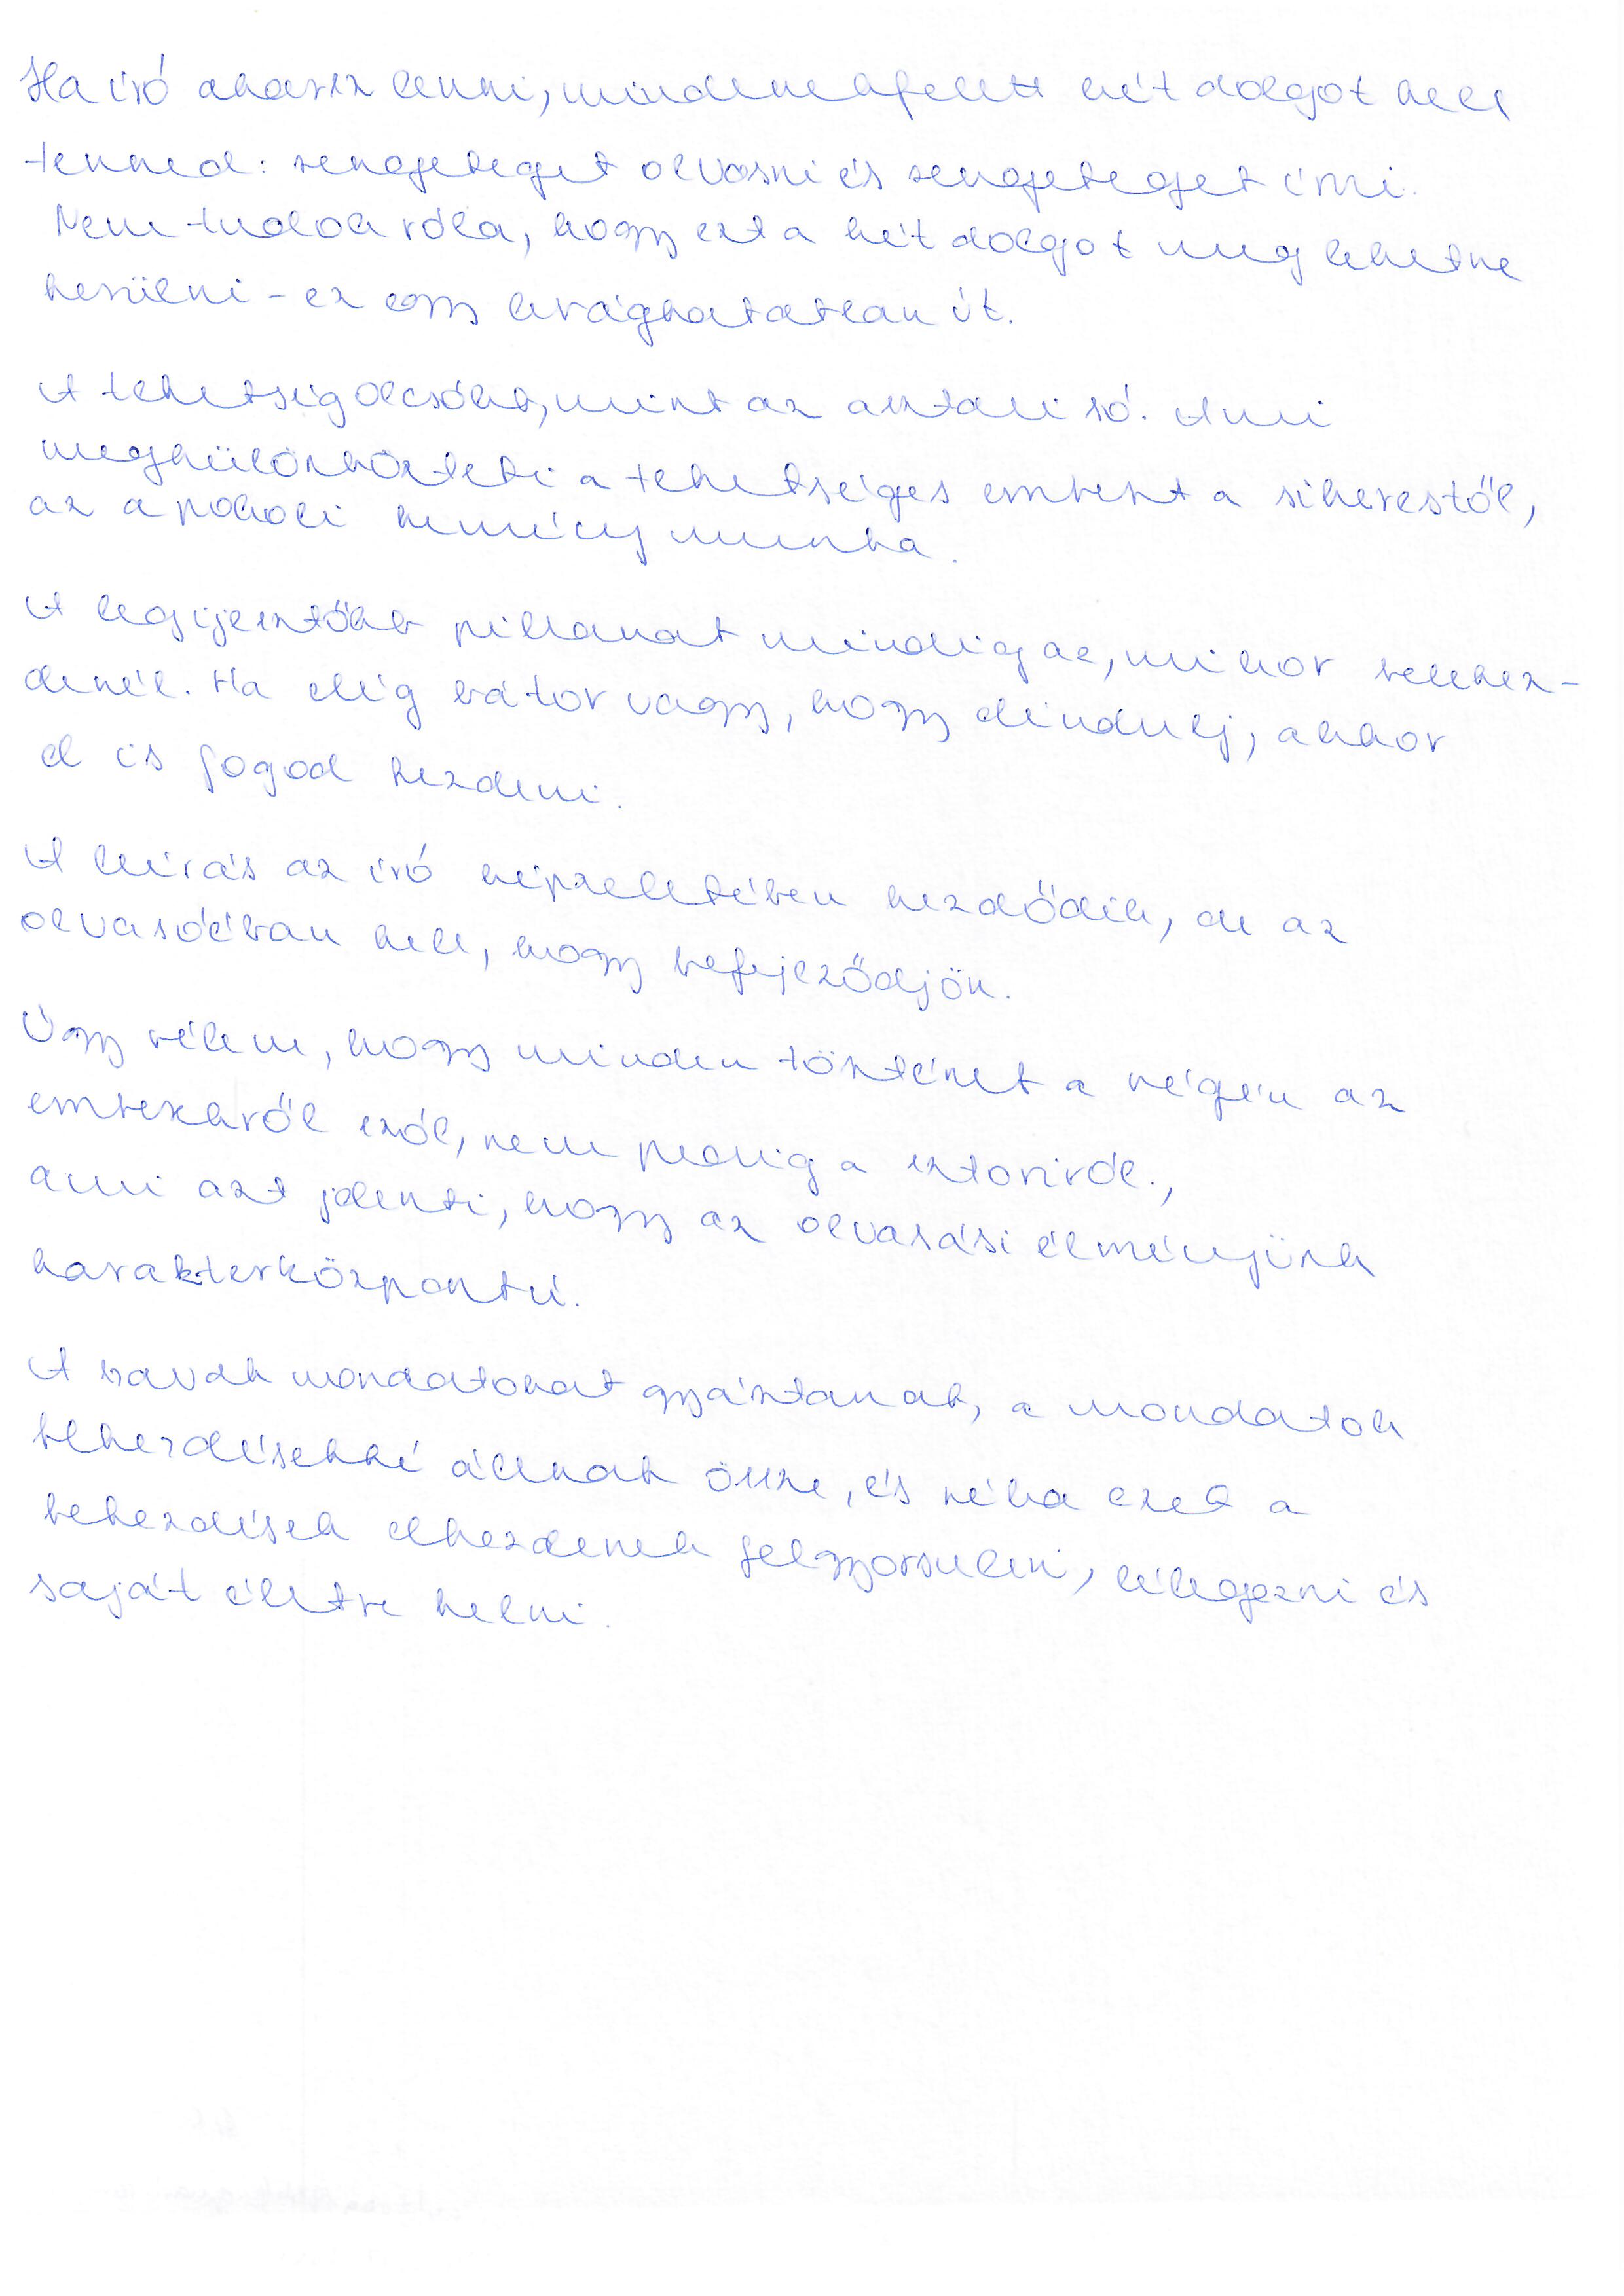 Ha író akarsz lenni, mindenekfelett két dolgot kell
tenned: rengeteget olvasni és rengeteget írni.
Nem tudok róla, hogy ezt a két dolgot meg lehetne
kerülni - ez egy levághatatlan út.
A tehetség olcsóbb, mint az asztali só. Ami
megkülönbözteti a tehetséges embert a sikerestől,
az a pokoli kemény munka.
A legijesztőbb pillanat mindig az, mikor belekez-
denél. Ha elég bátor vagy, hogy elindulj, akkor
el is fogod kezdeni.
A leírás az író képzeletében kezdődik, de az
olvasóéban kell, hogy befejeződjön.
Úgy vélem, hogy minden történet a végén az
emberekről szól, nem pedig a sztoriról.,
ami azt jelenti, hogy az olvasási élményünk
karakterközpontú.
A szavak mondatokat gyártanak, a mondatok
bekezdésekké állnak össze, és néha ezek a
bekezdések elkezdenek felgyorsulni, lélegezni és
saját életre kelni.